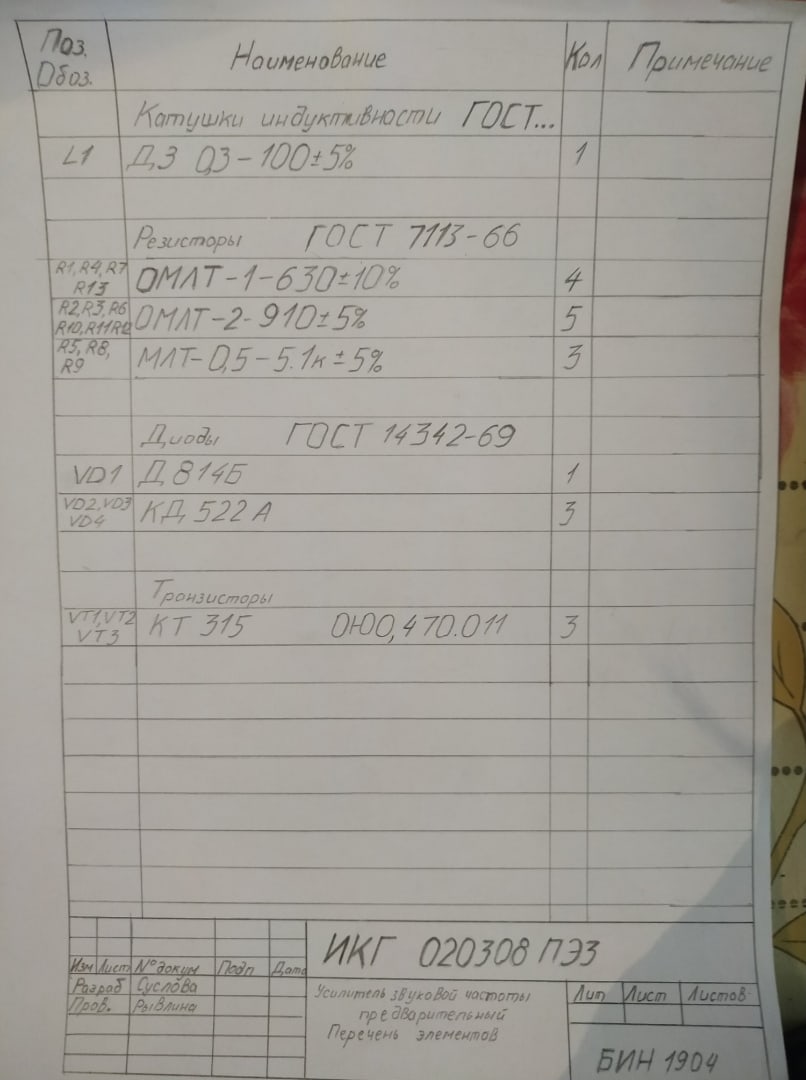 Поз. Обоз. Наименование Кол Примечание
Катушки индуктивности ГОСТ...
L1 Д,3 0,3-100±5% 1
Резисторы ГОСТ 7113-66
R1, R4, R7
R13 ОМЛТ-1-630±10% 4
R2, R3, R6
R10, R11 R12 ОМЛТ-2-910±5% 5
R5, R8,
R9 МЛТ-0,5-5.1к±5% 3
Диоды ГОСТ 14342-69
VD1 Д 814Б 1
VD2, VD3
VD4 КД 522 А 3
Транзисторы
VT1, VT2
VT3 КТ 315 ОЮ0,470.011 3
ИКГ 020308 ПЭ3
Изм Лист № докум Подп Дата
Разраб Суслова
Пров. Рывлина
Усилитель звуковой частоты
предварительный
Перечень элементов
Лит Лист Листов
БИН 1904